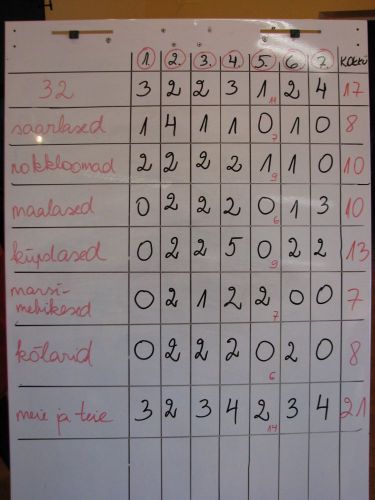 1. 2. 3. 4. 5. 6. 7. KOKKU
32 3 2 2 3 1 11 2 4 17
saarlased 1 4 1 1 0 7 1 0 8
rokkloomad 2 2 2 2 1 9 1 0 10
maalased 0 2 2 2 0 6 1 3 10
küpdased 0 2 2 5 0 9 2 2 13
marsi-
mehikesed 0 2 1 2 2 7 0 0 7
kõlarid 0 2 2 2 0 6 2 0 8
meie ja teie 3 2 3 4 2 14 3 4 21